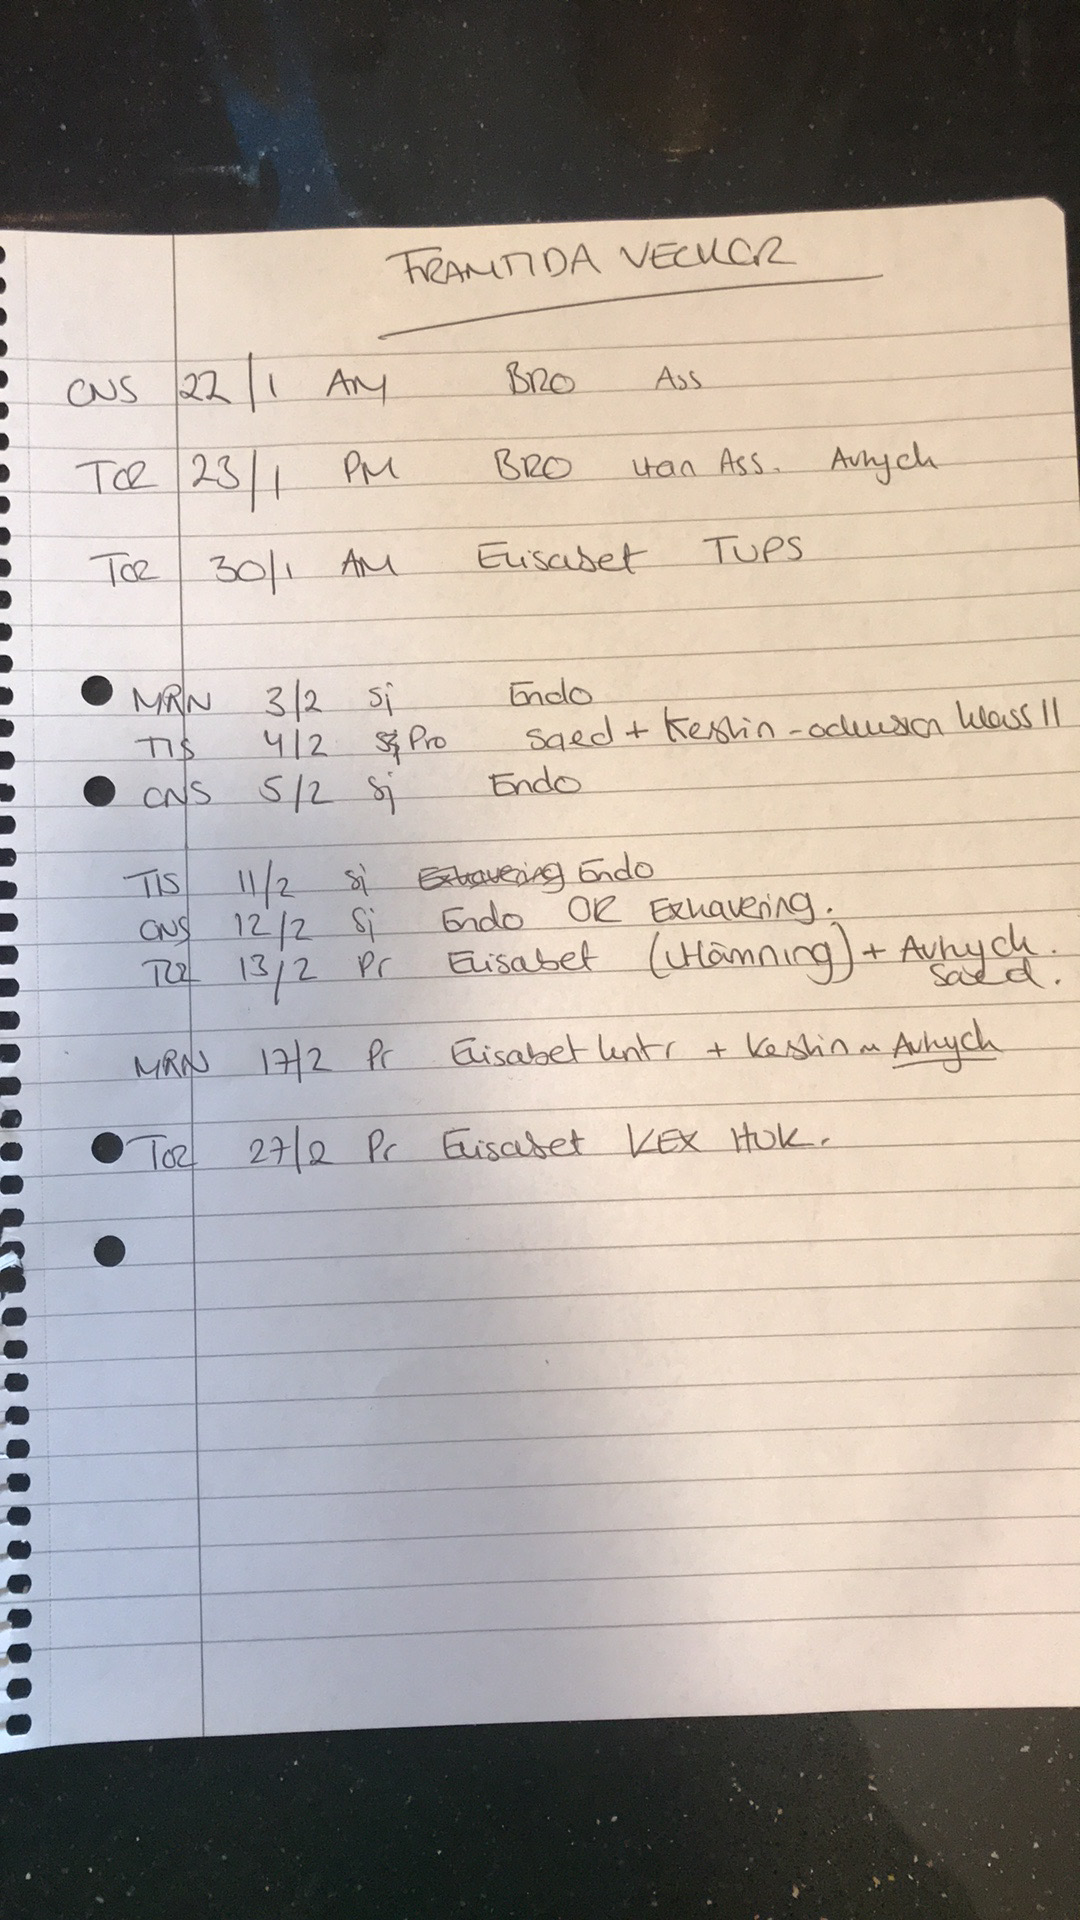 FRAMTIDA VECKOR
ONS 22/1 AM BRO Ass
TOR 23/1 PM BRO utan Ass. Avtryck
TOR 30/1 AM Elisabet TUPS
MÅN 3/2 Sj Endo
TIS 4/2 Pro Saed + Kerstin - ocklusion klass II
ONS 5/2 Sj Endo
TIS 11/2 Sj Exkavering Endo
ONS 12/2 Sj Endo OR Exkavering.
TOR 13/2 Pr Elisabet (Utlämning) + Avtryck.
Saed.
MÅN 17/2 Pr Elisabet kntr + Kerstin Avtryck
TOR 27/2 Pr Elisabet KEX HUK.